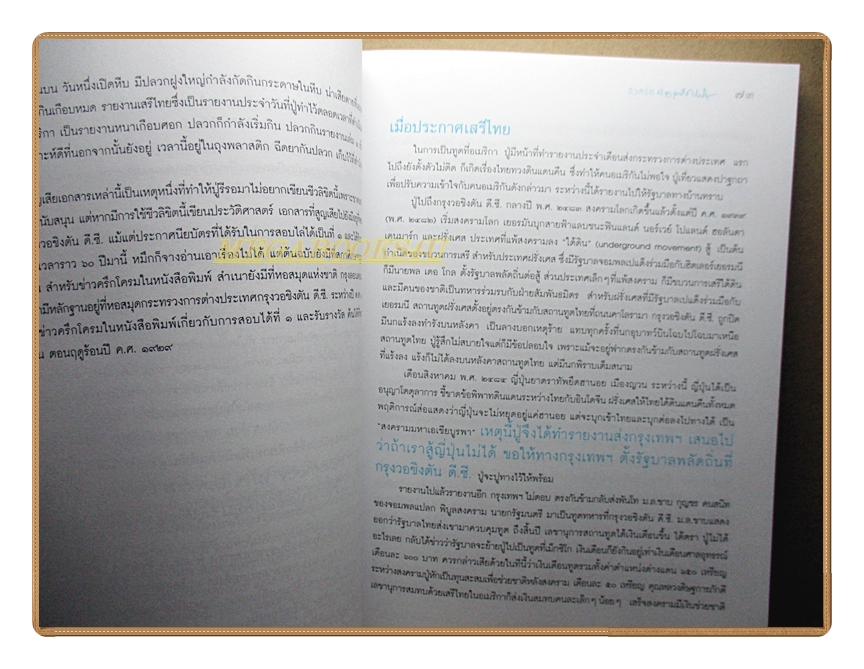 นบน วันหนึ่งเปิดหีบ มีปลวกฝูงใหญ่กำลังกัดกินกระดาษในหีบ น่าเสียดาย
กินเกือบหมด รายงานเสรีไทยซึ่งเป็นรายงานประจำวันที่ปู่ทำไว้ตลอดเวลา
ริกา เป็นรายงานหนาเกือบศอก ปลวกก็กำลังเริ่มกิน ปลวกกินรายงานเล่ม
าะห์ดีที่นอกจากนั้นยังอยู่ เวลานี้อยู่ในถุงพลาสติก ฉีดยากันปลวก เก็บไว้
ญเสียเอกสารเหล่านี้เป็นเหตุหนึ่งที่ทำให้ปู่รีรอมาไม่อยากเขียนชีวลิขิตนี้
นับสนุน แต่หากมีการใช้ชีวลิขิตนี้เขียนประวัติศาสตร์ เอกสารที่สูญเสียไป
วอชิงตัน ดี.ซี. แม้แต่ประกาศนียบัตรที่ได้รับในการสอบไล่ได้เป็นที่ ๑
เวลาราว ๖๐ ปีมานี้ หมึกก็จางอ่านเอาเรื่องไม่ได้ แต่ต้นฉบับยังมี
น สำหรับข่าวครึกโครมในหนังสือพิมพ์ สำเนายังมีที่หอสมุดแห่งชาติ
มีหลักฐานอยู่ที่หอสมุดกระทรวงการต่างประเทศกรุงวอชิงตัน ดี.ซี.
ข่าวครึกโครมในหนังสือพิมพ์เกี่ยวกับการสอบได้ที่ ๑ และรับรางวัล
น ตอนฤดูร้อนปี ค.ศ. ๑๙๒๙
๗๓
เมื่อประกาศเสรีไทย
ในการเป็นทูตที่อเมริกา ปู่มีหน้าที่ทำรายงานประจำเดือนส่งกระทรวงการต่างประเทศ แรก
ไปถึงยังตั้งตัวไม่ติด ก็เกิดเรื่องไทยทวงดินแดนคืน ซึ่งทำให้คนอเมริกันไม่พอใจ ปู่เที่ยวแสดงปาฐกถา
เพื่อปรับความเข้าใจกับคนอเมริกันดังกล่าวมา ระหว่างนี้ได้รายงานไปให้รัฐบาลทางบ้านทราบ
ปู่ไปถึงกรุงวอชิงตัน ดี.ซี. กลางปี พ.ศ. ๒๔๘๓ สงครามโลกเกิดขึ้นแล้วตั้งแต่ปี ค.ศ. ๑๙๓๙
(พ.ศ. ๒๔๘๒) เริ่มสงครามโลก เยอรมันบุกสายฟ้าแลบชนะฟินแลนด์ นอร์เวย์ โปแลนด์ ฮอลันดา
เดนมาร์ก และฝรั่งเศส ประเทศที่แพ้สงครามลง "ใต้ดิน" (underground movement) สู้ เป็นต้น
เป็นขบวนการเสรี สำหรับประเทศฝรั่งเศส ซึ่งมีรัฐบาลจอมพลเปแต็งร่วมมือกับฮิตเลอร์เยอรมนี
ก็มีนายพล เดอ โกล ตั้งรัฐบาลพลัดถิ่นต่อสู้ ส่วนประเทศเล็กๆ ที่แพ้สงคราม ก็มีขบวนการเสรีใต้ดิน
และมีคนของชาติเป็นทหารร่วมรบกับฝ่ายสัมพันธมิตร สำหรับฝรั่งเศสที่มีรัฐบาลเปแต็งร่วมมือกับ
เยอรมนี สถานทูตฝรั่งเศสตั้งอยู่ตรงกันข้ามกับสถานทูตไทยที่ถนนคาโลรามา กรุงวอชิงตัน ดี.ซี. ถูกปิด
มีนกแร้งลงทำรังบนหลังคา เป็นลางบอกเหตุร้าย แทบทุกครั้งที่นกอุบาทว์บินโฉบไปโฉบมาเหนือ
สถานทูตไทย ปู่รู้สึกไม่สบายใจแต่ก็มีข้อปลอบใจ เพราะแม้จะอยู่ฟากตรงกันข้ามกับสถานทูตฝรั่งเศส
ที่แร้งลง แร้งก็ไม่ได้ลงบนหลังคาสถานทูตไทย แต่มีนกพิราบเต็มสนาม
เดือนสิงหาคม พ.ศ. ๒๔๘๔ ญี่ปุ่นยาตราทัพยึดฮานอย เมืองญวน ระหว่างนี้ ญี่ปุ่นได้เป็น
อนุญาโตตุลาการ ชี้ขาดข้อพิพาทดินแดนระหว่างไทยกับอินโดจีน ฝรั่งเศสให้ไทยได้ดินแดนคืนทั้งหมด
พฤติการณ์ส่อแสดงว่าญี่ปุ่นจะไม่หยุดอยู่แค่ฮานอย แต่จะบุกเข้าไทยและบุกต่อลงไปทางใต้ เป็น
"สงครามมหาเอเชียบูรพา" เหตุนี้ปู่จึงได้ทำรายงานส่งกรุงเทพฯ เสนอไป
ว่าถ้าเราสู้ญี่ปุ่นไม่ได้ ขอให้ทางกรุงเทพฯ ตั้งรัฐบาลพลัดถิ่นที่
กรุงวอชิงตัน ดี.ซี. ปู่จะปูทางไว้ให้พร้อม
รายงานไปแล้วรายงานอีก กรุงเทพฯ ไม่ตอบ ตรงกันข้ามกลับส่งพันโท ม.ล.ขาบ กุญชร คนสนิท
ของจอมพลแปลก พิบูลสงคราม นายกรัฐมนตรี มาเป็นทูตทหารที่กรุงวอชิงตัน ดี.ซี. ม.ล.ขาบแสดง
ออกว่ารัฐบาลไทยส่งเขามาควบคุมทูต ถึงสิ้นปี เลขานุการสถานทูตได้เงินเดือนขึ้น ได้ตรา ปู่ไม่ได้
อะไรเลย กลับได้ข่าวว่ารัฐบาลจะย้ายปู่ไปเป็นทูตที่เม็กซิโก เงินเดือนก็ยังกินอยู่เท่าเงินเดือนศาลอุทธรณ์
เดือนละ ๖๐๐ บาท ควรกล่าวเสียด้วยในที่นี้ว่าเงินเดือนทูตรวมทั้งค่าตำแหน่งต่างแดน ๖๕๐ เหรียญ
ระหว่างสงครามปู่หักเป็นทุนสะสมเพื่อช่วยชาติหลังสงคราม เดือนละ ๕๐ เหรียญ คุณหลวงดิษฐการภักดี
เลขานุการสมทบด้วยเสรีไทยในอเมริกาก็ส่งเงินสมทบคนละเล็กๆ น้อยๆ เสร็จสงครามมีเงินช่วยชาติ
MEGABOOKS4U